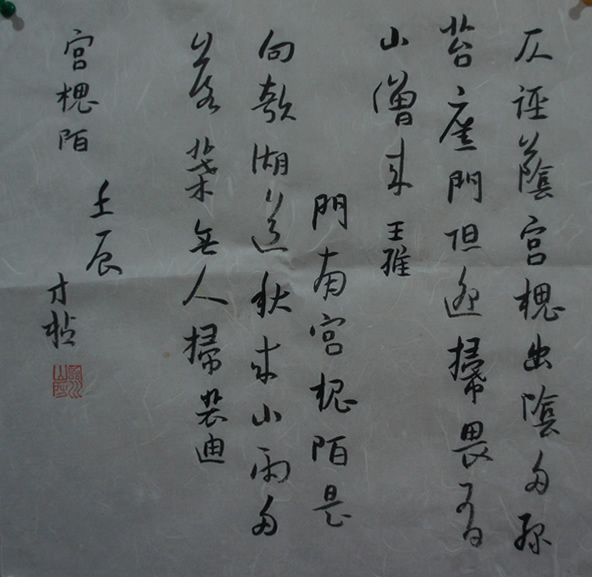 仄逕蔭宮槐幽陰多綠
苔應門但迎掃畏有
山僧來 王維
門南宮槐陌是
向欹湖道秋來山雨多
落葉無人掃 裴迪
宮槐陌
壬辰